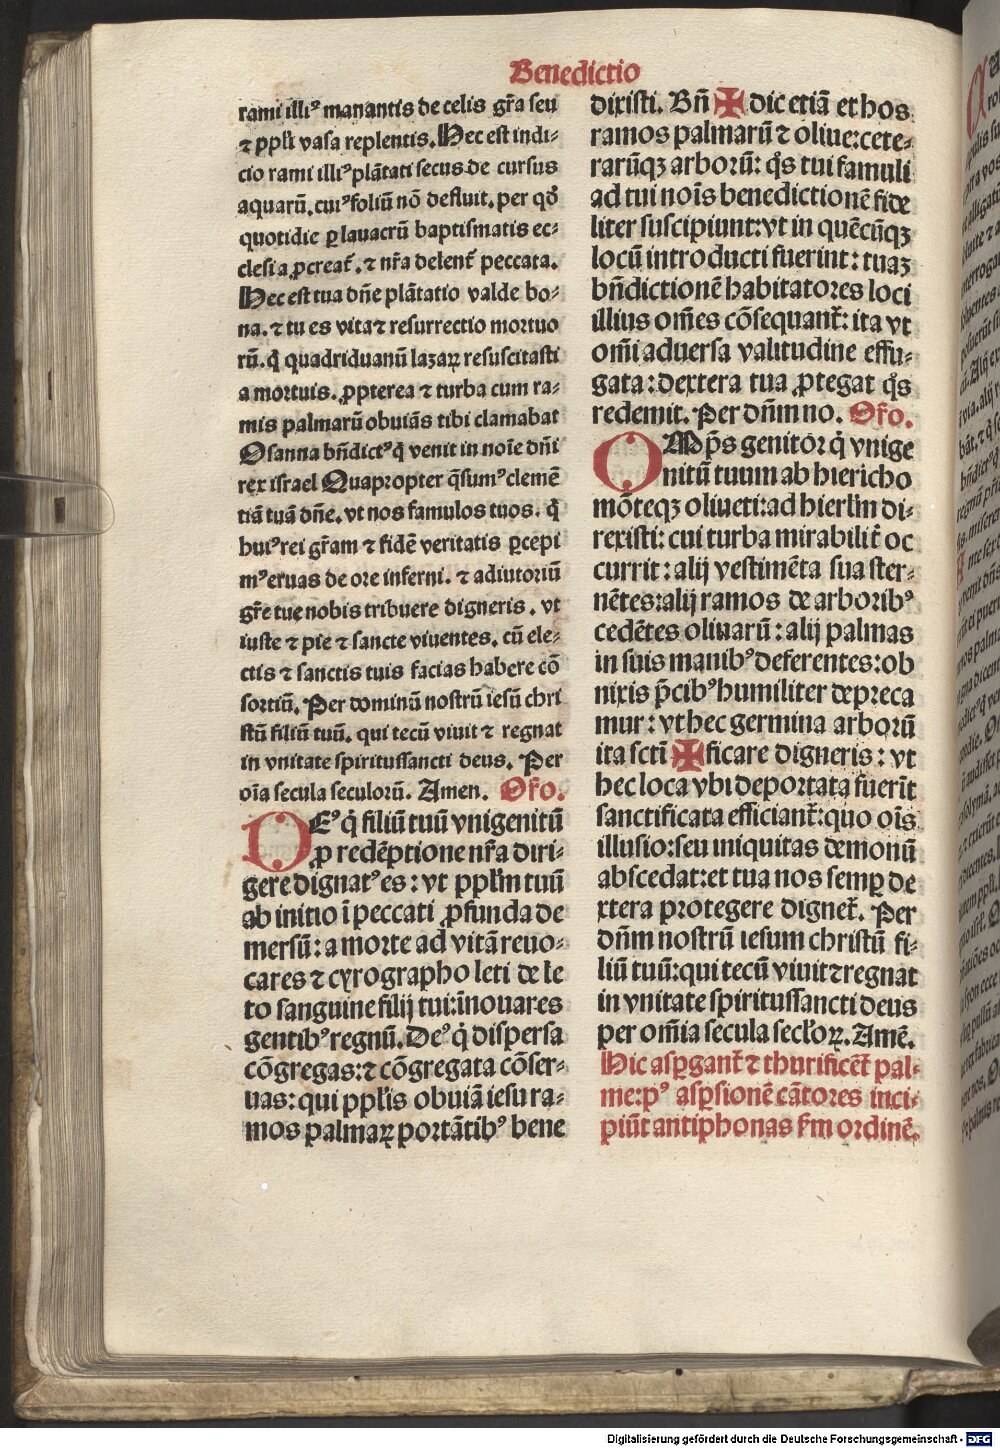 Benedictio
rami illiꝰ manantis de celis gr̃a seu
⁊ ppl'i vasa replentis. Hec est indi-
cio rami illiꝰ plãtati secus de cursus
aquarũ. cuiꝰ foliũ nõ defluit. per qð
quotidie ꝑ lauacrũ baptismatis ec-
clesia ꝓcreat̃. ⁊ nr̃a delent̃ peccata.
Hec est tua dñe plãtatio valde bo-
na. ⁊ tu es vita ⁊ resurrectio mortuo
rũ. q̃ quadriduanũ lazaꝝ resuscitasti
a mortuis. ꝓpterea ⁊ turba cum ra-
mis palmarũ obuiãs tibi clamabat
Osanna bñdictꝰ q̃ venit in noĩe dñi
rex israel Quapropter q̃sumꝰ clemẽ
tiã tuã dñe. vt nos famulos tuos. q̃
huiꝰ rei gr̃am ⁊ fidẽ veritatis ꝑcepi
mꝰ eruas de ore inferni. ⁊ adiutoriũ
gr̃e tue nobis tribuere digneris. vt
iuste ⁊ pie ⁊ sancte viuentes. cũ ele-
ctis ⁊ sanctis tuis facias habere cõ
sortiũ. Per dominũ nostrũ iesũ chri
stũ filiũ tuũ. qui tecũ viuit ⁊ regnat
in vnitate spiritussancti deus. Per
oĩa secula seculorũ. Amen. Or̃o.
DEꝰ q̃ filiũ tuũ vnigenitũ
ꝓ redẽptione nr̃a diri-
gere dignatꝰ es: vt ppl'm tuũ
ab initio ĩ peccati ꝓfunda de
mersũ: a morte ad vitã reuo-
cares ⁊ cyrographo leti dele
to sanguine filij tui: ĩnouares
gentibꝰ regnũ. Deꝰ q̃ dispersa
cõgregas: ⁊ cõgregata cõser-
uas: qui ppl'is obuiã iesu ra-
mos palmaꝝ portãtibꝰ bene
dixisti. Bñ ✠ dic etiã et hos
ramos palmarũ ⁊ oliue: cete-
rarũqꝫ arborũ: q̃s tui famuli
ad tui noĩs benedictionẽ fide
liter suscipiunt: vt in quẽcũqꝫ
locũ introducti fuerint: tuaꝫ
bñdictionẽ habitatores loci
illius om̃es cõsequant̃: ita vt
om̃i aduersa valitudine effu-
gata: dextera tua ꝓtegat q̃s
redemit. Per dñm no. Or̃o.
OMp̃s genitor q̃ vnige
nitũ tuum ab hiericho
mõteqꝫ oliueti: ad hierl'm di-
rexisti: cui turba mirabilit̃ oc
currit: alij vestimẽta sua ster-
nẽtes: alij ramos de arboribꝰ
cedẽtes oliuarũ: alij palmas
in suis manibꝰ deferentes: ob
nixis p̃cibꝰ humiliter depreca
mur: vt hec germina arborũ
ita sctĩ ✠ ficare digneris: vt
hec loca vbi deportata fuerĩt
sanctificata efficiant̃: quo oĩs
illusio: seu iniquitas demonũ
abscedat: et tua nos semꝑ de
xtera protegere dignet̃. Per
dñm nostrũ iesum christũ fi-
liũ tuũ: qui tecũ viuit ⁊ regnat
in vnitate spiritussancti deus
per om̃ia secula secl'oꝝ. Amẽ.
Hic aspgant̃ ⁊ thurificẽt̃ pal-
me: pꝰ aspsionẽ cãtores inci-
piũt antiphonas fm̃ ordinẽ.
Digitalisierung gefördert durch die Deutsche Forschungsgemeinschaft - DFG